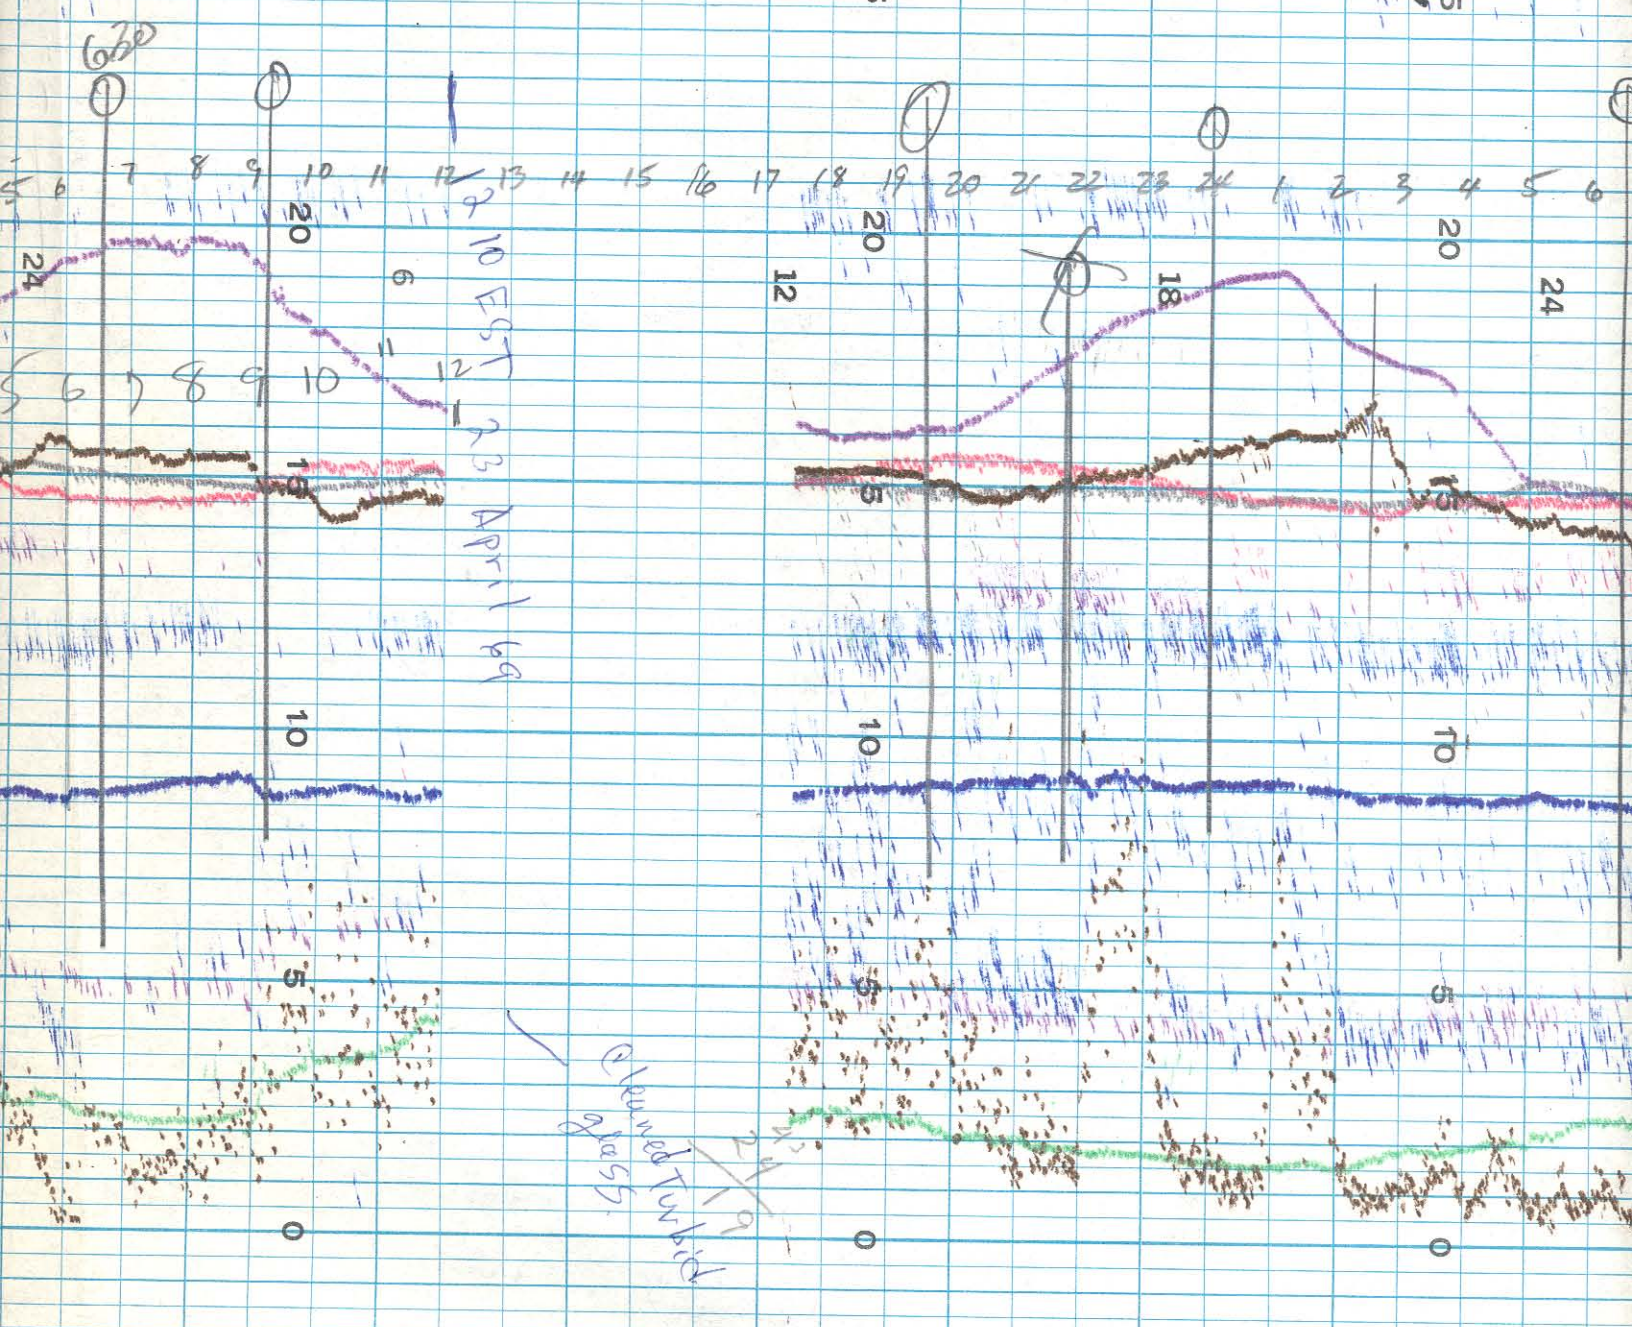 630
5 6 7 8 9 10 11 12 13 14 15 16 17 18 19 20 21 22 23 24 1 2 3 4 5 6
20 20 20
24 6 12 18 24
5 6 7 8 9 10 11 12
10 EST 23 April 69
15 15 15
10 10 10
5 5 5
Cleaned Turbid
glass.
0 0 0